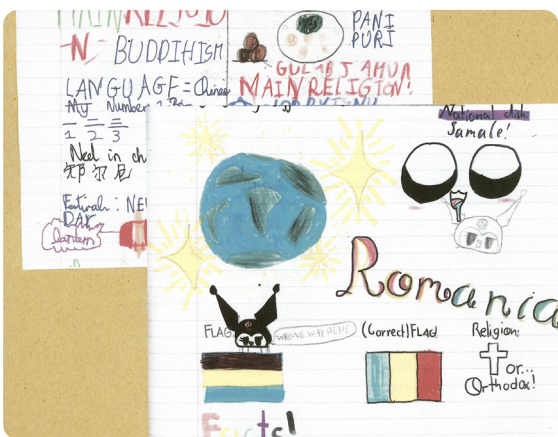 MAIN RELIGIO
-N- BUDDIHISM
LANGUAGE = Chinese
My Number
一 二 三
1 2 3
Neel in ch
Festivals: NEW
DAY
lantern
PANI
PURI
GULAB JAMUN
MAIN RELIGION!
National dish:
Samale!
Romania
FLAG
WRONG WAY HEHE
(Correct) FLAG
Religion:
or...
Orthodox!
Facts!